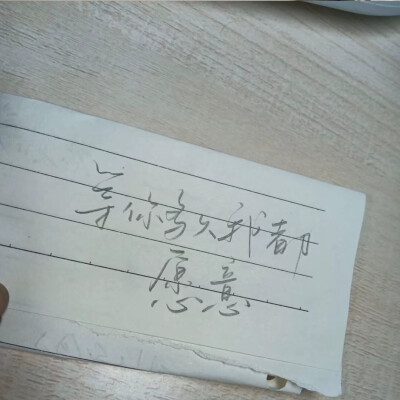 等你多久我都
愿意